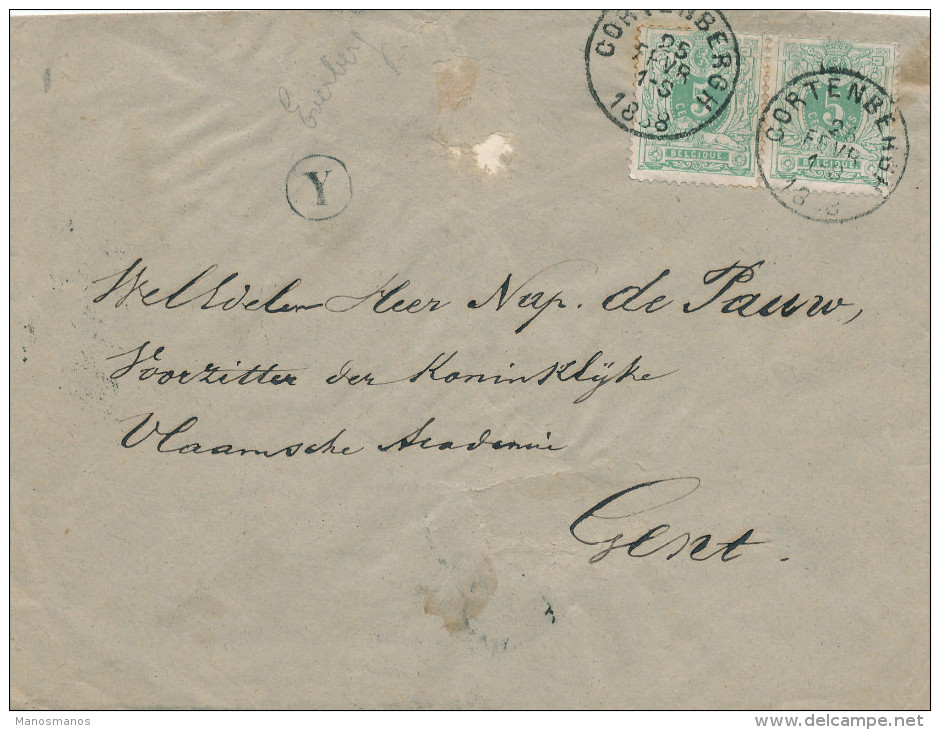 CORTENBERGH
25
FEVR
1-S
1888
5
BELGIQUE
CORTENBERGH
25
FEVR
1-S
5
BELGIQUE
Everberg
Y
WelEdelen Heer Nap. de Pauw,
Voorzitter der Koninklijke
Vlaamsche Academie
Gent.
Manosmanos
delcampe.net